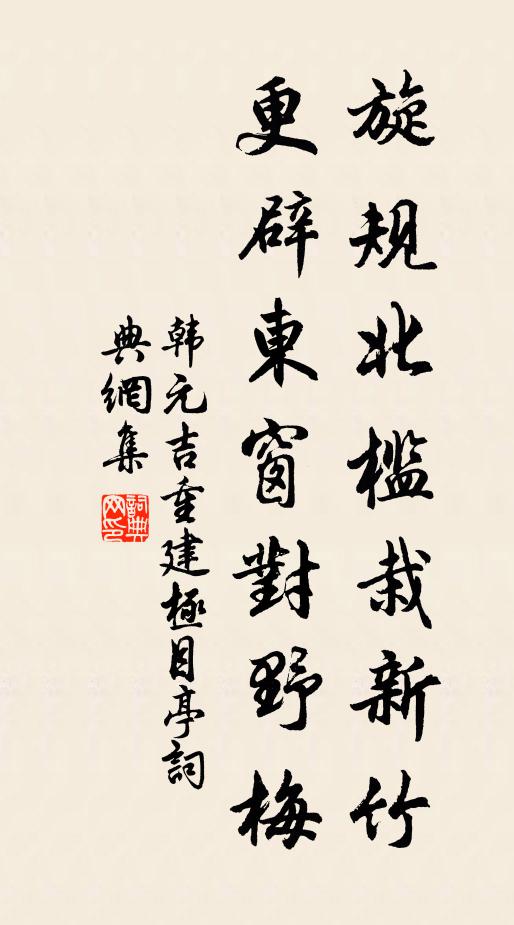 旋規北檻栽新竹
更辟東窗對野梅
韩元吉重建極目亭詞
典網集
詞典網印